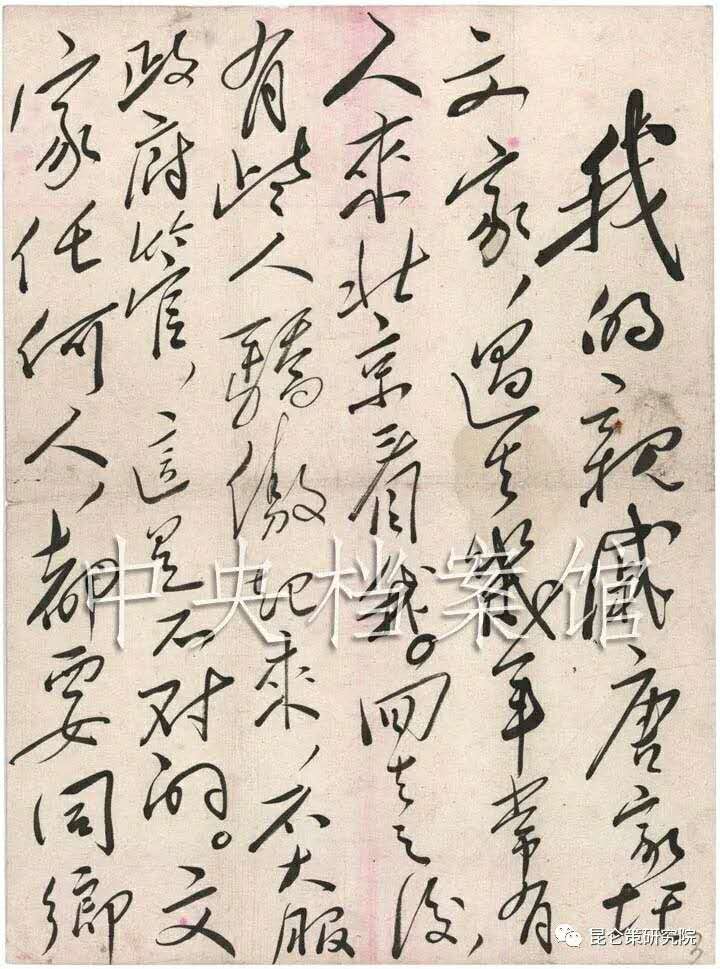 我的親戚唐家圫
文家，過去幾年常有
人來北京看我。回去之後，
有些人驕傲起來，不大服
政府管，這是不对的。文
家任何人，都要同鄉
中央档案馆
昆仑策研究院